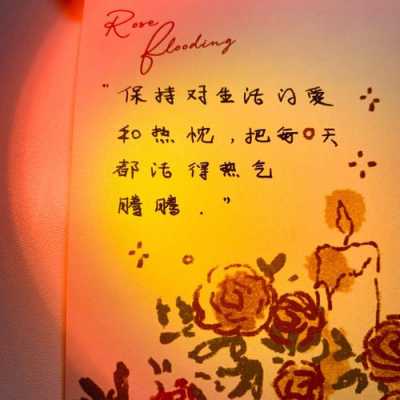 Rose
flooding
"保持对生活的爱
和热忱，把每一天
都活得热气
腾腾."